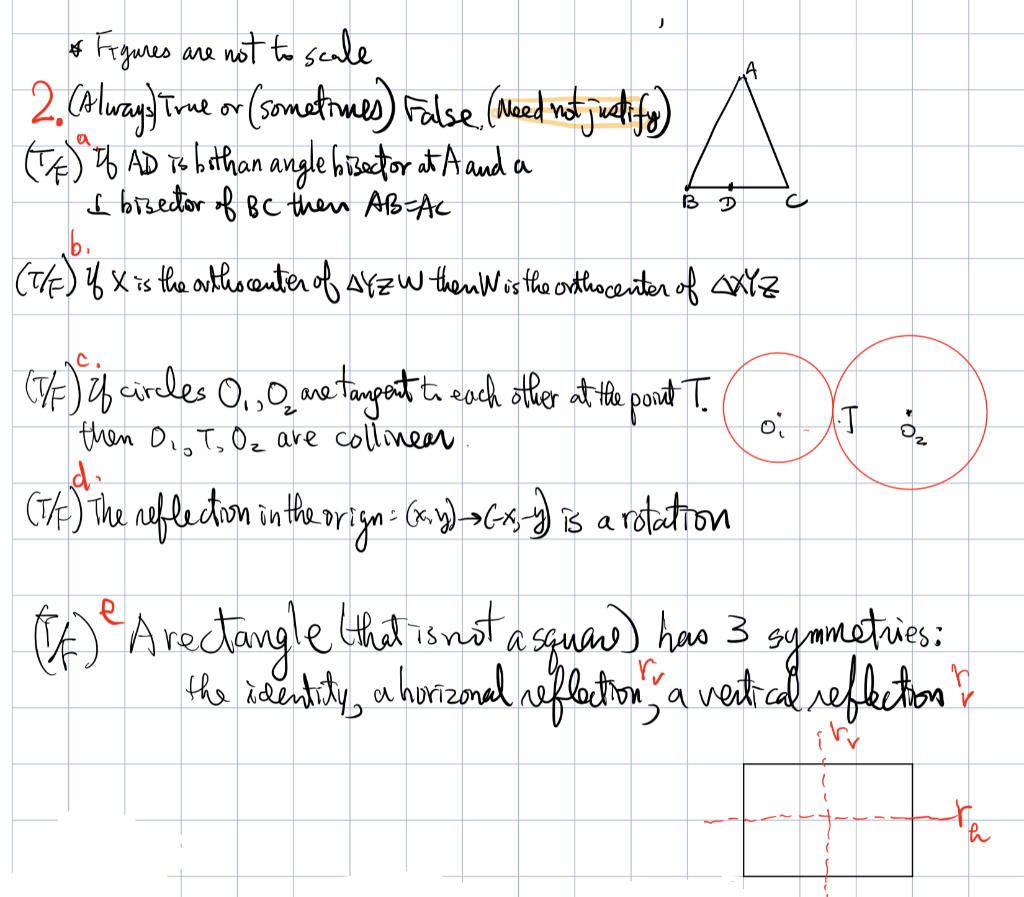 * Figures are not to scale
2. (Always) True or (sometimes) False. (Need not justify)
A
(T/F) a If AD is both an angle bisector at A and a
⊥ bisector of BC then AB=AC
B D C
b.
(T/F) If X is the orthocenter of △YZW then W is the orthocenter of △XYZ
c.
(T/F) If circles O₁, O₂ are tangent to each other at the point T.
then O₁, T, O₂ are collinear.
O₁ T O₂
d.
(T/F) The reflection in the orign: (x,y)→(-x,-y) is a rotation
(T/F) e A rectangle (that is not a square) has 3 symmetries:
the identity, a horizonal reflection rᵥ, a vertical reflection r
v
rᵥ
rₕ